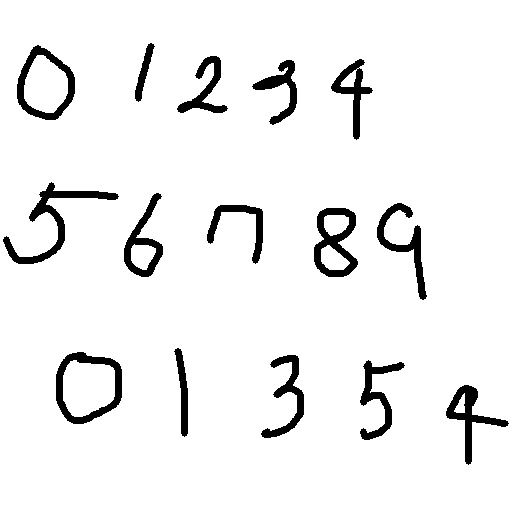 0 1 2 3 4
5 6 7 8 9
0 1 3 5 4